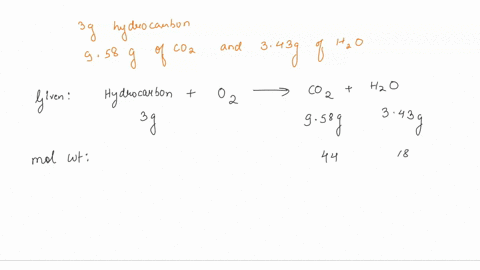 3g hydrocarbon
9.58 g of CO2 and 3.43g of H2O
Given: Hydrocarbon + O2 ⟶ CO2 + H2O
3g 9.58g 3.43g
mol wt: 44 18